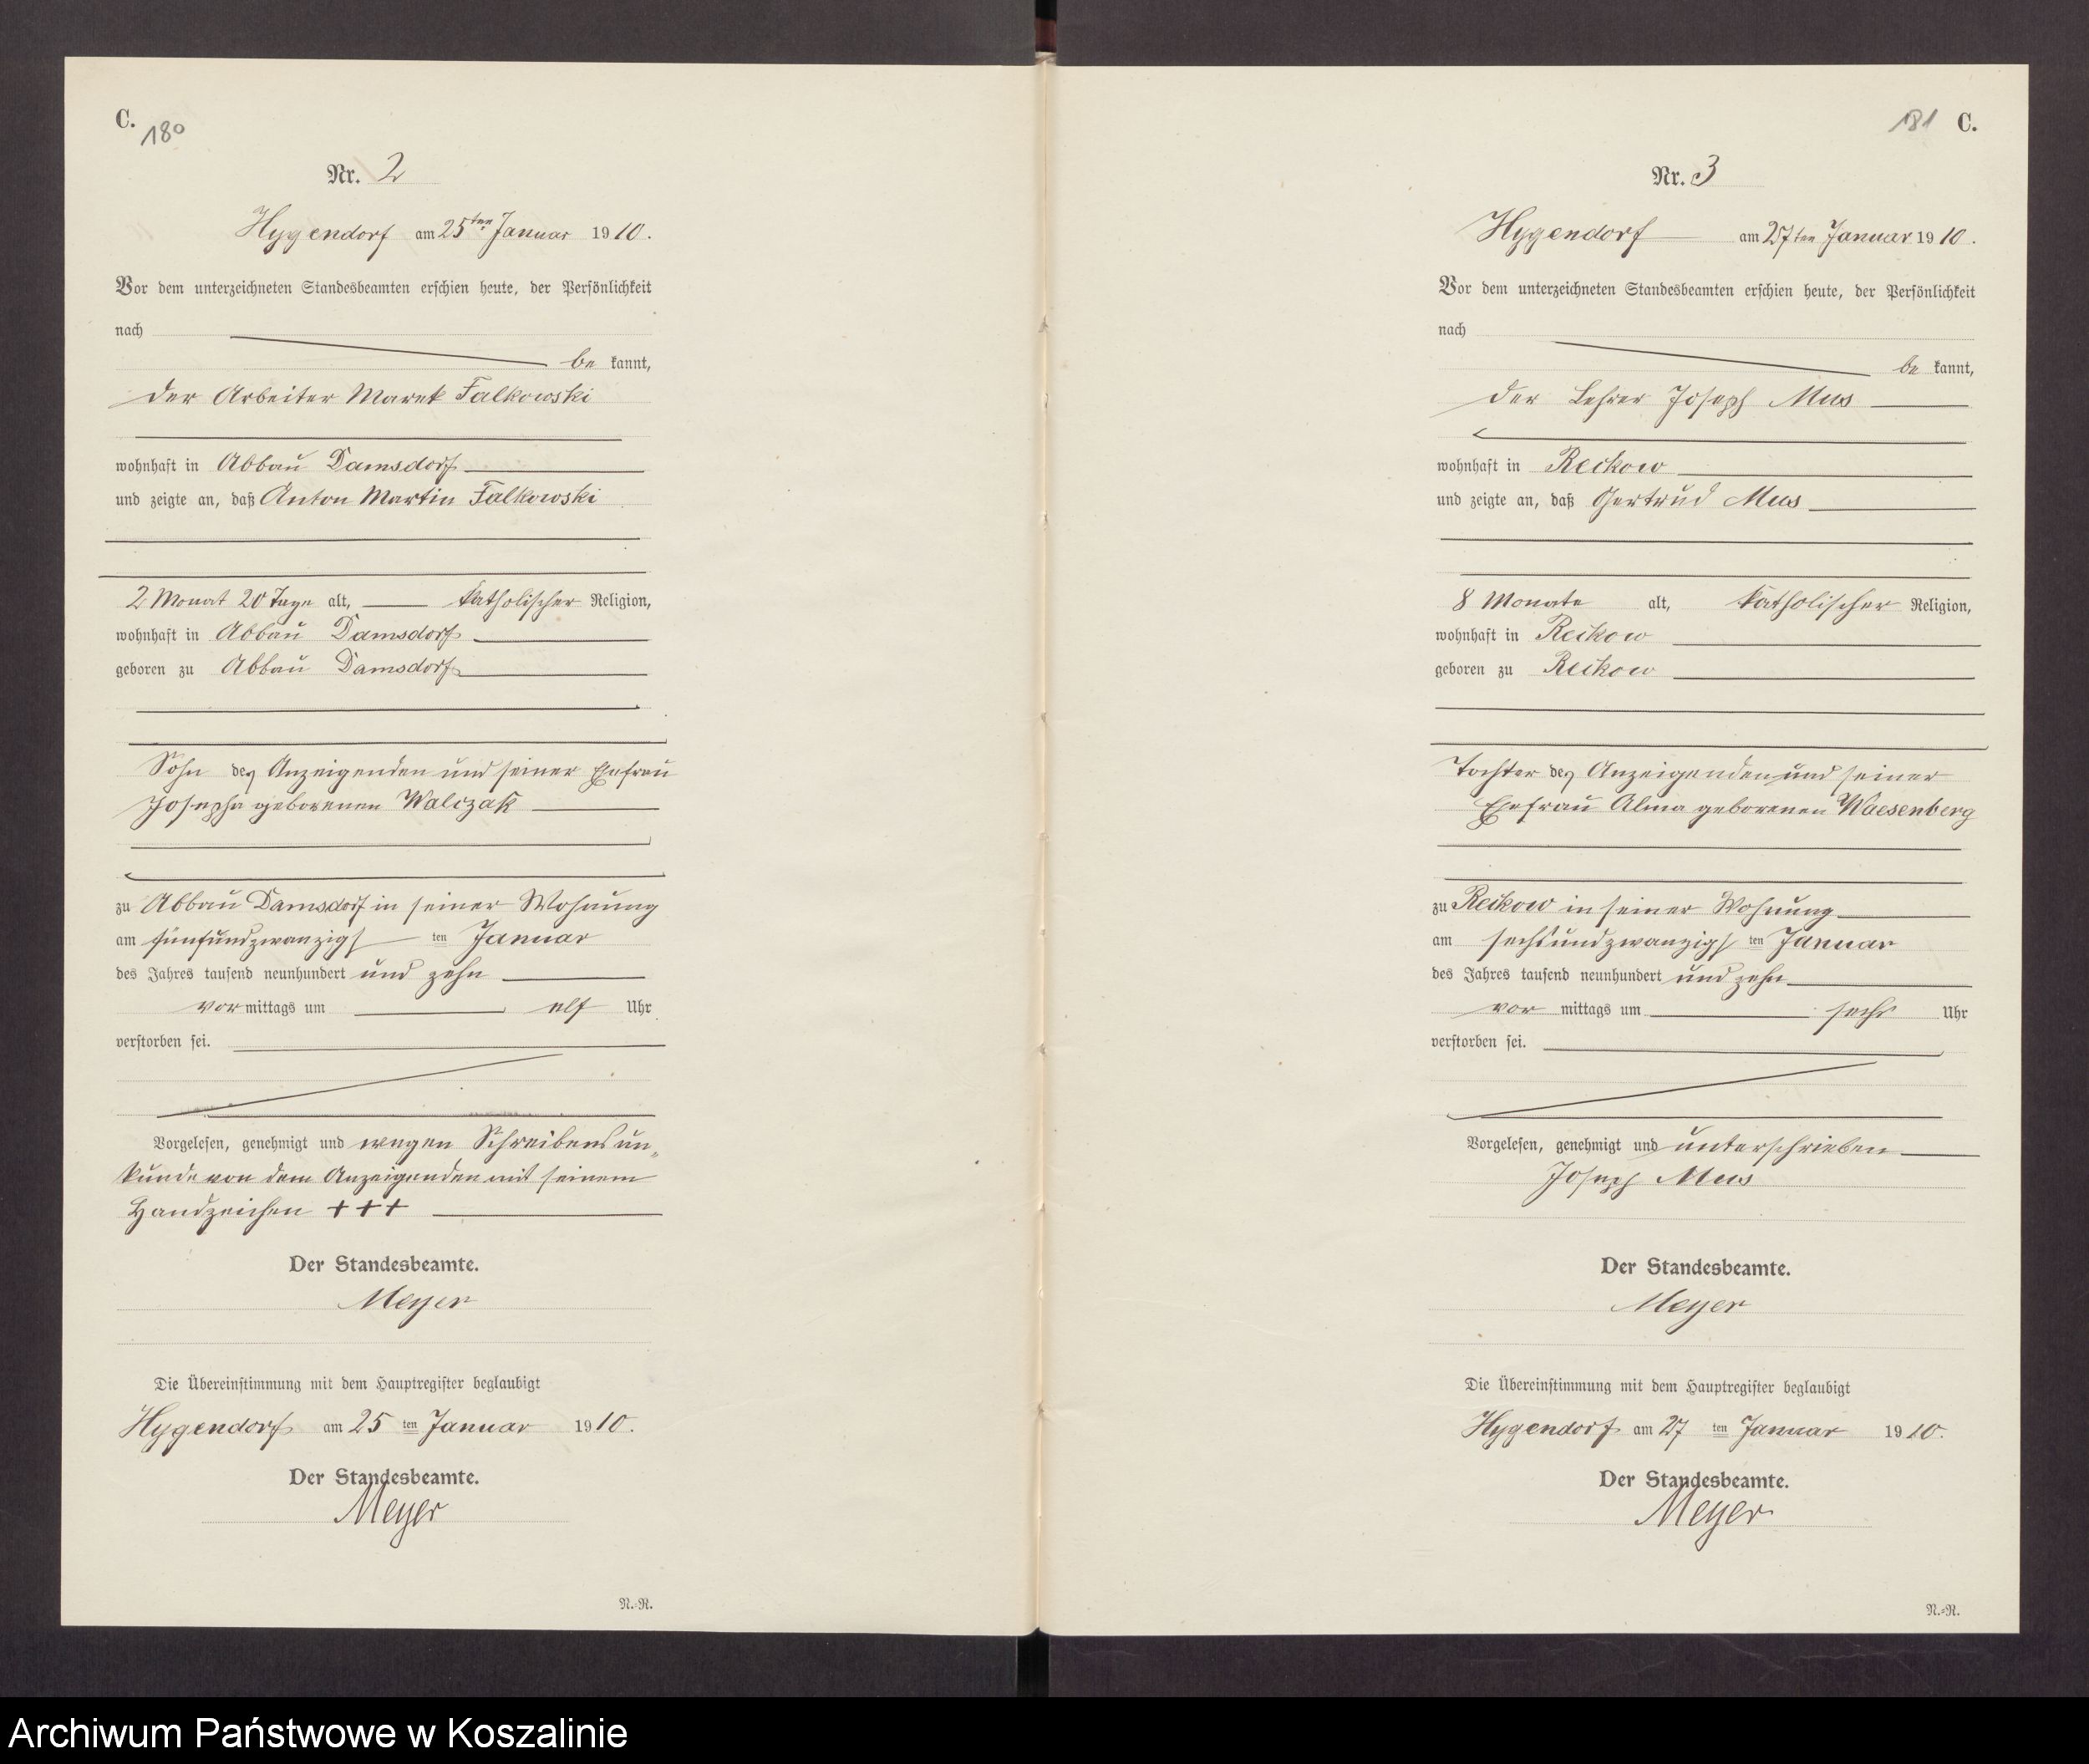 C.
180
Nr. 2
Hygendorf am 25ten Januar 1910.
Vor dem unterzeichneten Standesbeamten erschien heute, der Persönlichkeit
nach
be kannt,
der Arbeiter Marek Falkowski
wohnhaft in Abbau Damsdorf
und zeigte an, daß Anton Martin Falkowski
2 Monat 20 Tage alt, katholischer Religion,
wohnhaft in Abbau Damsdorf
geboren zu Abbau Damsdorf
Sohn des Anzeigenden und seiner Ehefrau
Josepha geborenen Walczak
zu Abbau Damsdorf in seiner Wohnung
am fünfundzwanzigs ten Januar
des Jahres tausend neunhundert und zehn
vor mittags um elf Uhr
verstorben sei.
Vorgelesen, genehmigt und wegen Schreibensun„
kunde von dem Anzeigenden mit seinem
Handzeichen +++
Der Standesbeamte.
Meyer
Die Übereinstimmung mit dem Hauptregister beglaubigt
Hygendorf am 25 ten Januar 1910.
Der Standesbeamte.
Meyer
N.-R.
181 C.
Nr. 3
Hygendorf am 27ten Januar 1910.
Vor dem unterzeichneten Standesbeamten erschien heute, der Persönlichkeit
nach
be kannt,
der Lehrer Joseph Mus
wohnhaft in Reckow
und zeigte an, daß Gertrud Mus
8 Monate alt, katholischer Religion,
wohnhaft in Reckow
geboren zu Reckow
Tochter des Anzeigenden und seiner
Ehefrau Alma geborenen Waesenberg
zu Reckow in seiner Wohnung
am sechsundzwanzigs ten Januar
des Jahres tausend neunhundert und zehn
vor mittags um sechs Uhr
verstorben sei.
Vorgelesen, genehmigt und unterschrieben
Joseph Mus
Der Standesbeamte.
Meyer
Die Übereinstimmung mit dem Hauptregister beglaubigt
Hygendorf am 27 ten Januar 1910.
Der Standesbeamte.
Meyer
N.-R.
Archiwum Państwowe w Koszalinie